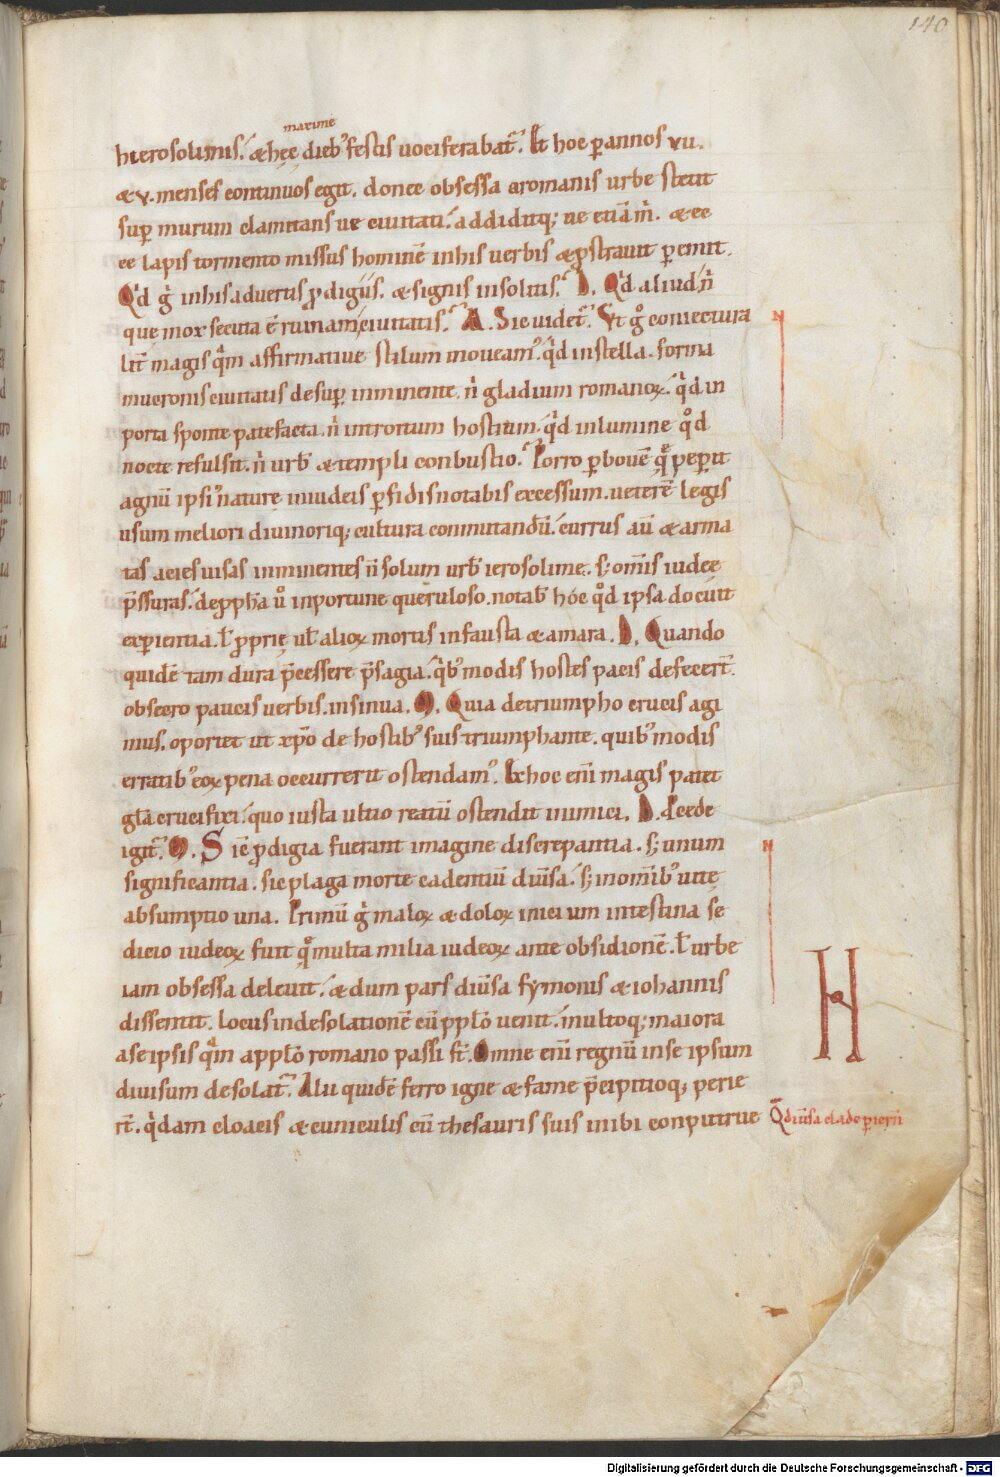 140
maxime
hierosolimis. & hęc dieb' festis uociferabat̃. Et hoc p annos vii.
& v. menses continuos egit. donec obsessa a romanis urbe stetit
sup murum clamitans ue ciuitati. addiditq; ue etiā m. & ec
ce lapis tormento missus hominē in his uerbis & pstrauit & pemit.
Qd g in his aduertis pdigiis. & signis insolitis. D. Qd aliud n
que mox secuta ē ruinam ciuitatis. M. Sic uidet̃. Vt g coniectura
lit magis qm affirmatiue stilum moueam'. qd in stella. forma
mucronis ciuitatis desup imminente. n gladium romanoꝝ. qd in
porta sponte patefacta. n introitum hostium. qd in lumine qd
nocte refulsit. n urb & templi conbustio. Porro p bouē q pepit
agnū ipsi' nature iniudeis pfidis notabis excessum. ueterē legis
usum meliori diuinoriq; cultura conmutandū. currus aū & arma
tas acies uisas imminentes n solum urb ierosolime. s; omīs iudeę
pssuras. de ppha ů inportune queruloso. notab hoc qd ipsa docuit
expientia. ł pprię uł alioꝝ mortis infausta & amara. D. Quando
quidē tam dura pcessere psagia. qb' modis hostes pacis defecert̃.
obsecro paucis uerbis insinua. M. Quia de triumpho crucis agi
mus. oportet ut xpo de hostib' suis triumphante. quib' modis
erratib' eoꝝ pena occurrerit ostendam'. Ex hoc eni magis patet
gła crucifixi. quo iusta ultio reatū ostendit inimici. D. Pcede
igit̃. M. Sic pdigia fuerant imagine discrepantia. s; unum
significantia. sic plaga morte cadentiū diuīsa. s; in omīb' uitę
absumptio una. Primū g maloꝝ & doloꝝ iniciu intestina se
dicio iudeoꝝ fuit q multa milia iudeoꝝ ante obsidionē. ł urbe
iam obsessa deleuit. & dum pars diuīsa symonis & iohannis
dissentit. locus in desolationē cū ppło uenit. multoq; maiora
a se ipsis qm a ppło romano passi st. Omne eni regnū in se ipsum
diuisum desolat̃. Alii quidē ferro igne & fame pcipitioq; perie
rt. qdam cloacis & cuniculis cū thesauris suis inibi conputrue
H
Q diuīsa clade pierit
Digitalisierung gefördert durch die Deutsche Forschungsgemeinschaft - DFG